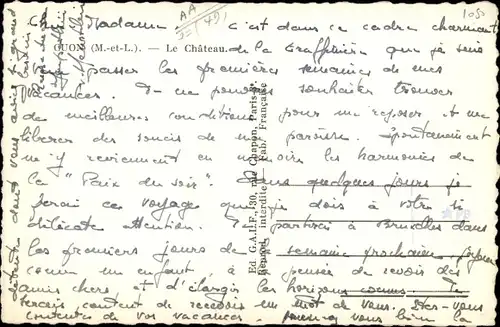 Chère Madame, c'est dans ce cadre charmant
CUON (M.-et-L.). — Le Château.
de la Graffinière que je suis
venu passer les premières semaines de mes
vacances. Je ne pouvais souhaiter trouver
de meilleures conditions pour me reposer et me
libérer des soucis de ma paroisse. Spontanément
me reviennent en mémoire les harmonies de
la "Paix du soir". Dans quelques jours je
ferai ce voyage que je dois à votre si
délicate attention. Je partirai à Bruxelles dans
les premiers jours de la semaine prochaine, joyeux
comme un enfant, à la pensée de revoir des
amis chers et d'élargir les horizons connus. Je
serais content de recevoir un mot de vous. Êtes-vous
contente de vos vacances.
Ed. G.A.I.F., 30, rue Chapon, Paris
Reprod. interdite Fab. Française
détente dont vous aviez si grand
besoin